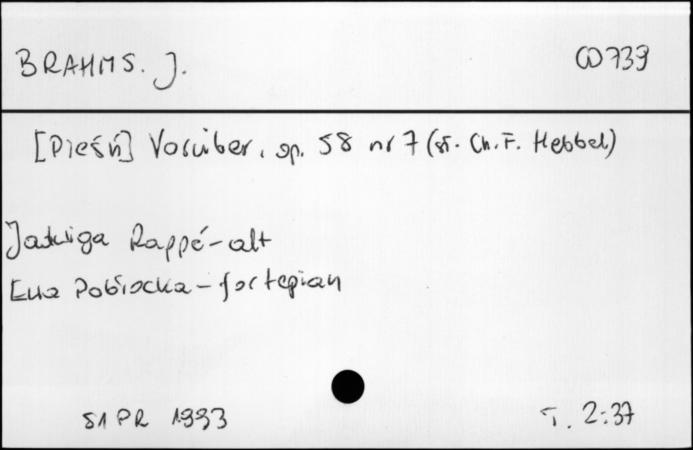 BRAHMS. J. CD 739
[Pieśń] Vorüber, op. 58 nr 7 (sł. Ch. F. Hebbel)
Jadwiga Rappé - alt
Ewa Pobłocka - fortepian
S1 PR 1993 T. 2:37